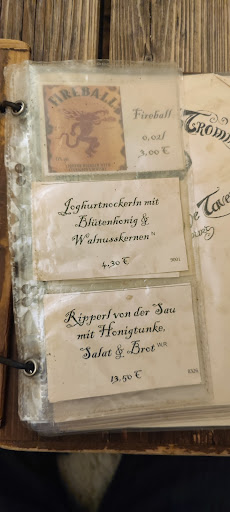 FIREBALL
Fireball
0,02l
3,00 €
Joghurtnockerln mit
Blütenhonig &
Walnusskernen
4,30 €
Ripperl von der Sau
mit Honigtunke,
Salat & Brot
13,50 €